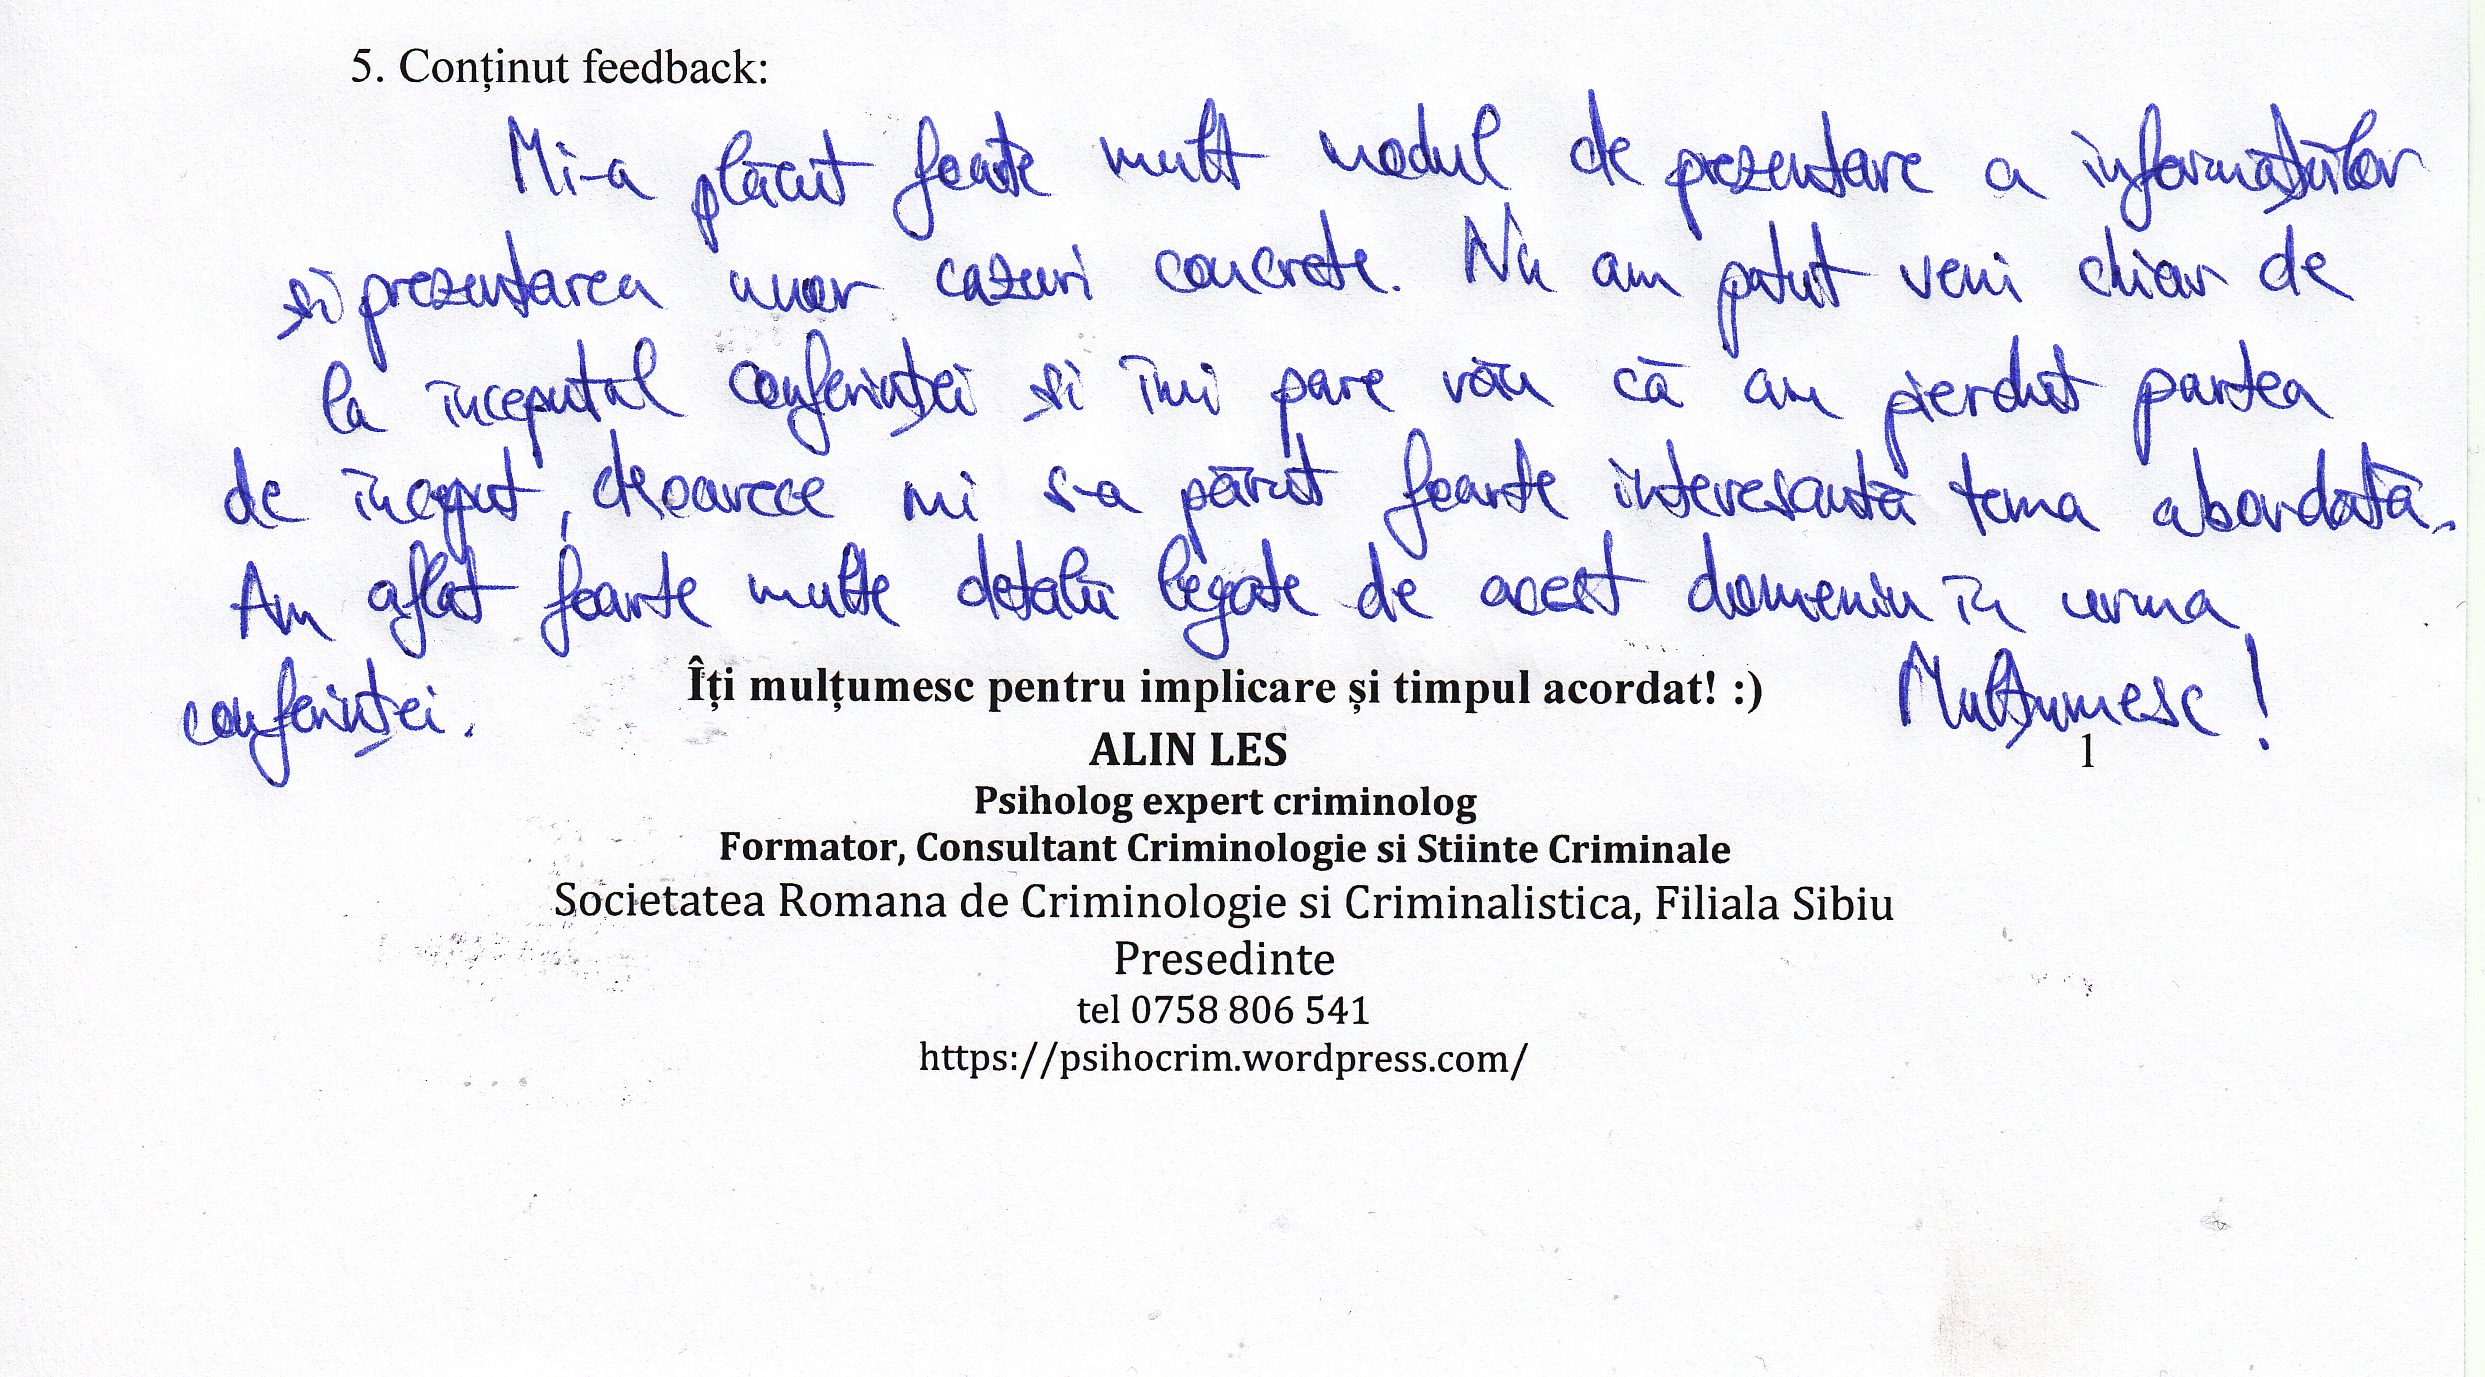 5. Conținut feedback:
Mi-a plăcut foarte mult modul de prezentare a informațiilor
și prezentarea unor cazuri concrete. Nu am putut veni chiar de
la începutul conferinței și îmi pare rău că am pierdut partea
de început, deoarece mi s-a părut foarte interesantă tema abordată.
Am aflat foarte multe detalii legate de acest domeniu în urma
conferinței. Mulțumesc!
Îți mulțumesc pentru implicare și timpul acordat! :)
ALIN LES
1
Psiholog expert criminolog
Formator, Consultant Criminologie si Stiinte Criminale
Societatea Romana de Criminologie si Criminalistica, Filiala Sibiu
Presedinte
tel 0758 806 541
https://psihocrim.wordpress.com/